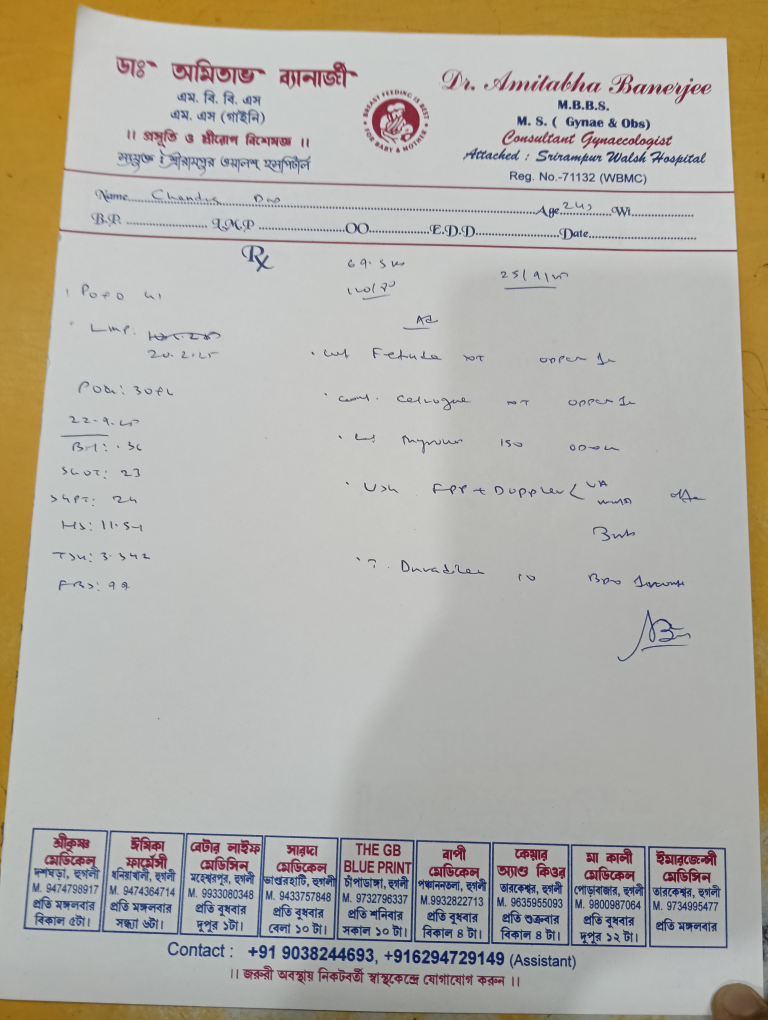 ডাঃ অমিতাভ ব্যানার্জী
এম. বি. বি. এস
এম. এস (গাইনি)
।। প্রসূতি ও স্ত্রীরোগ বিশেষজ্ঞ ।।
সংযুক্ত : শ্রীরামপুর ওয়ালস্ হসপিটাল
BREAST FEEDING IS BEST
FOR BABY & MOTHER
Dr. Amitabha Banerjee
M.B.B.S.
M. S. ( Gynae & Obs)
Consultant Gynaecologist
Attached : Srirampur Walsh Hospital
Reg. No.-71132 (WBMC)
Name.... Age 24y Wt.
B.P. L.M.P OO E.D.D Date
Rx
69.5
120/80
25/9/25
LMP.
20.2.25
POG:
22.9.25
SGOT: 23
SGPT: 24
Hb: 11.5
TSH: 3.342
FBS:
Ad
USG FPP + Doppler
Duvadilan 10
শ্রীকৃষ্ণ মেডিকেল
দশঘড়া, হুগলী
M. 9474798917
প্রতি মঙ্গলবার
বিকাল ৫টা।
ঈষিকা ফার্মেসী
ধনিয়াখালী, হুগলী
M. 9474364714
প্রতি মঙ্গলবার
সন্ধ্যা ৬টা।
বেটার লাইফ মেডিসিন
মহেশ্বরপুর, হুগলী
M. 9933080348
প্রতি বুধবার
দুপুর ১টা।
সারদা মেডিকেল
ভাণ্ডারহাটি, হুগলী
M. 9433757848
প্রতি বুধবার
বেলা ১০ টা।
THE GB BLUE PRINT
চাঁপাডাঙ্গা, হুগলী
M. 9732796337
প্রতি শনিবার
সকাল ১০ টা।
বাপী মেডিকেল
পঞ্চাননতলা, হুগলী
M.9932822713
প্রতি বুধবার
বিকাল ৪ টা।
কেয়ার অ্যাণ্ড কিওর
তারকেশ্বর, হুগলী
M. 9635955093
প্রতি শুক্রবার
বিকাল ৪ টা।
মা কালী মেডিকেল
পোড়াবাজার, হুগলী
M. 9800987064
প্রতি বুধবার
দুপুর ১২ টা।
ইমারজেন্সী মেডিসিন
তারকেশ্বর, হুগলী
M. 9734995477
প্রতি মঙ্গলবার
Contact : +91 9038244693, +916294729149 (Assistant)
।। জরুরী অবস্থায় নিকটবর্তী স্বাস্থ্যকেন্দ্রে যোগাযোগ করুন ।।